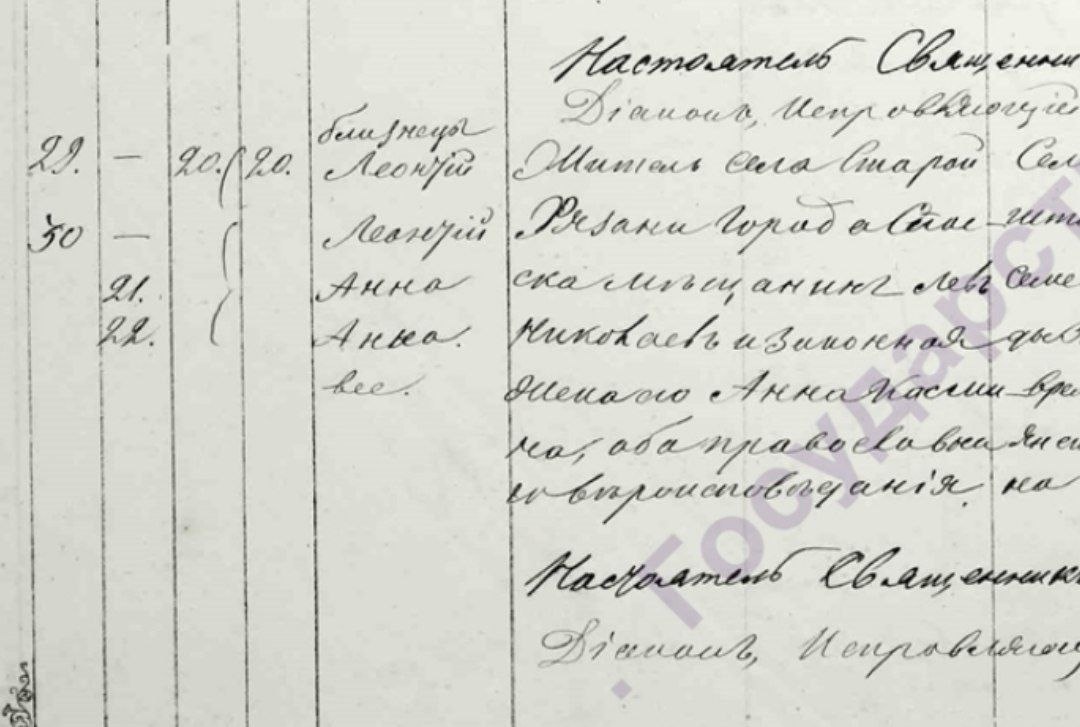 Настоятель Священни
Діаконъ, Исправляющій
близнецы
29. — 20. 20. Леонтій Житель села Старой Сем
30 — Леонтій Рязани города Спас
21. Анна ска мѣщанинъ Левъ Семе
22. Анна. Николаевъ и законная
все. жена его Анна
на, оба православна
го вѣроисповѣданія на
Настоятель Священникъ
Діаконъ, Исправляющ
Государст